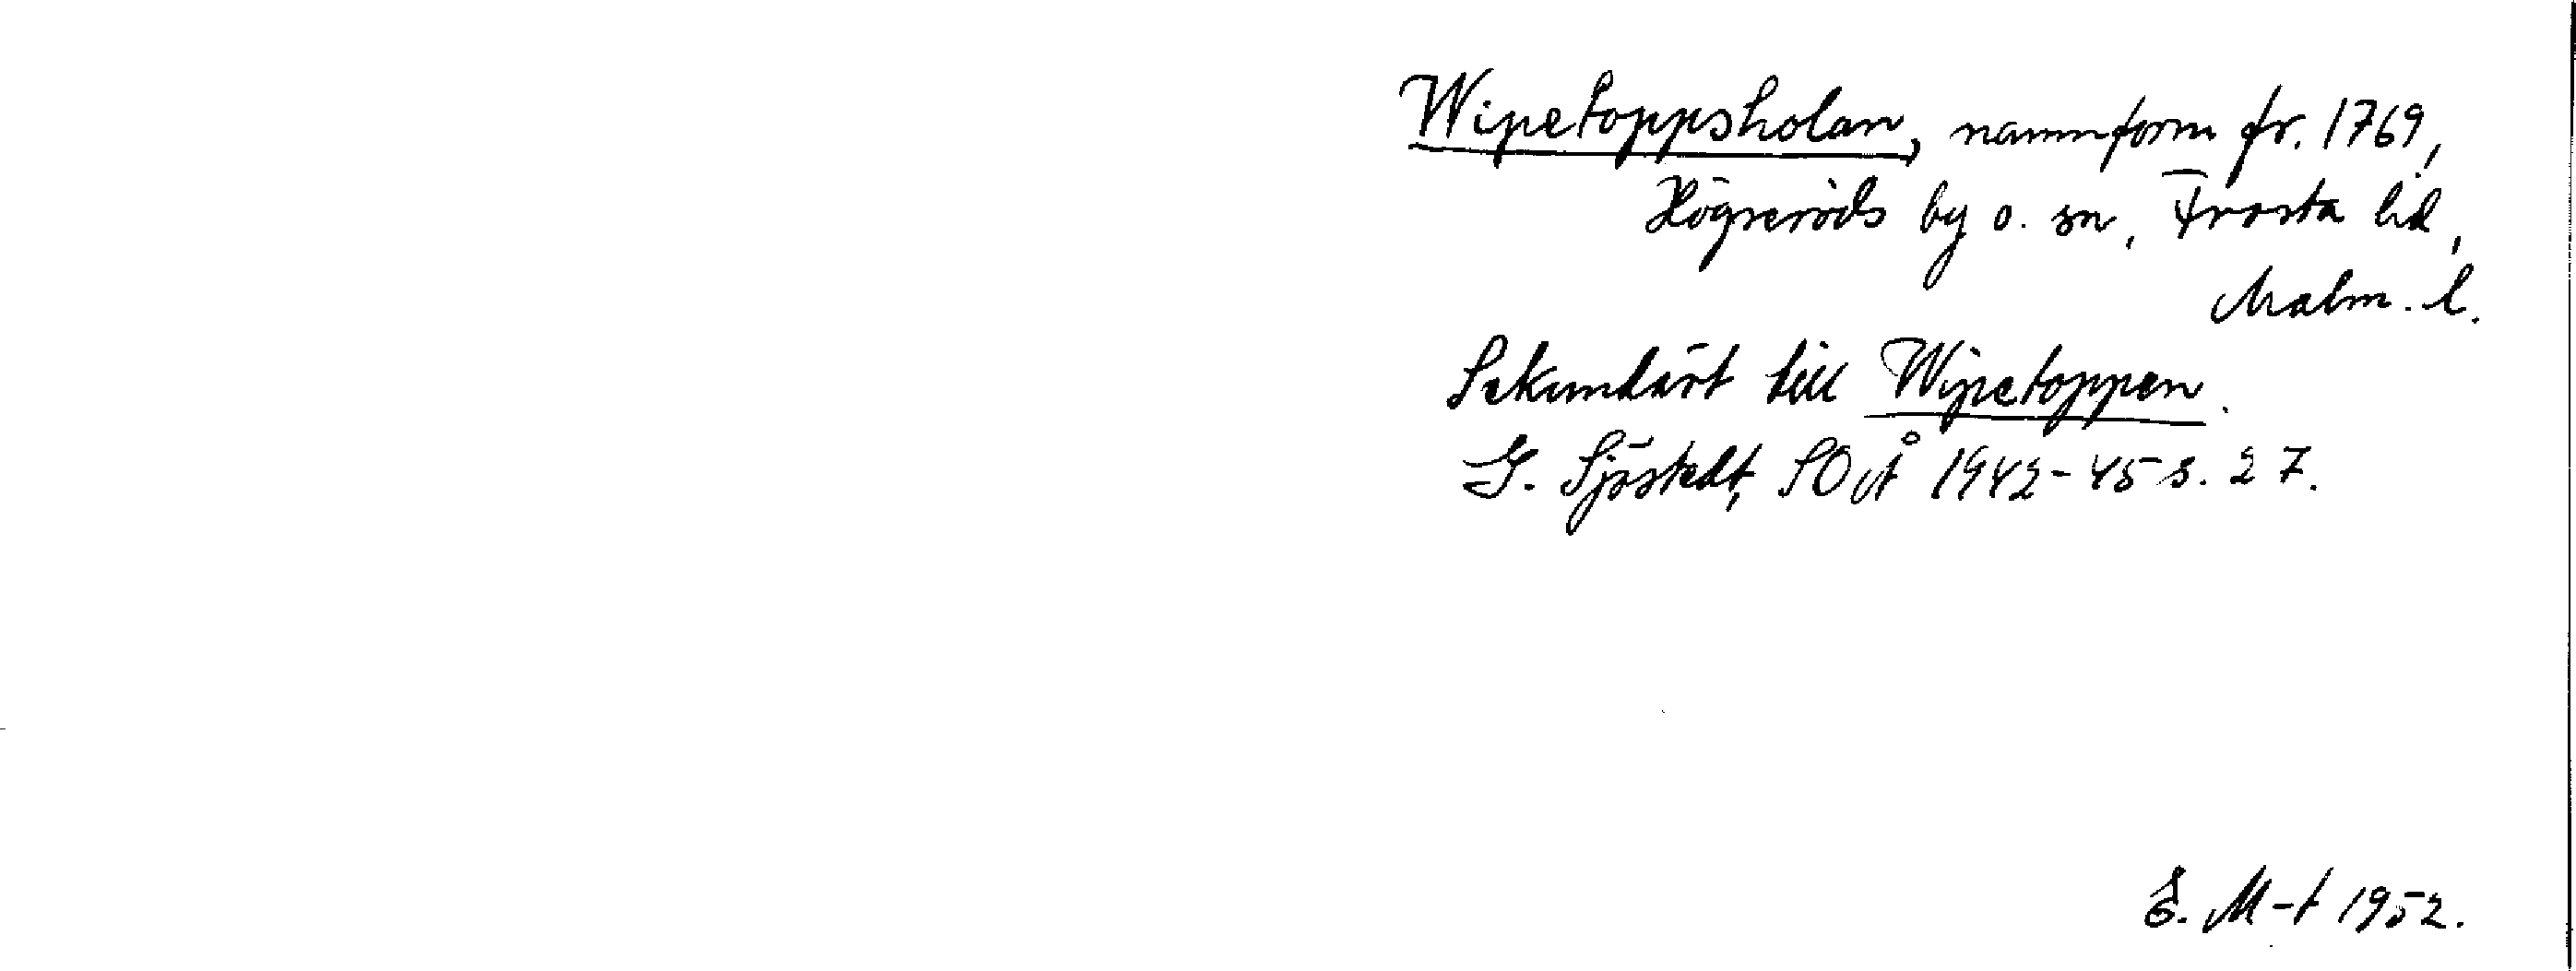 Wipetoppsholan, namnform fr. 1769,
Högseröds by o. sn, Frosta hd,
Malm. l.
Sekundärt till Wipetoppen.
G. Sjöstedt, SOÅ 1942-45 s. 27.
E. M-t 1952.